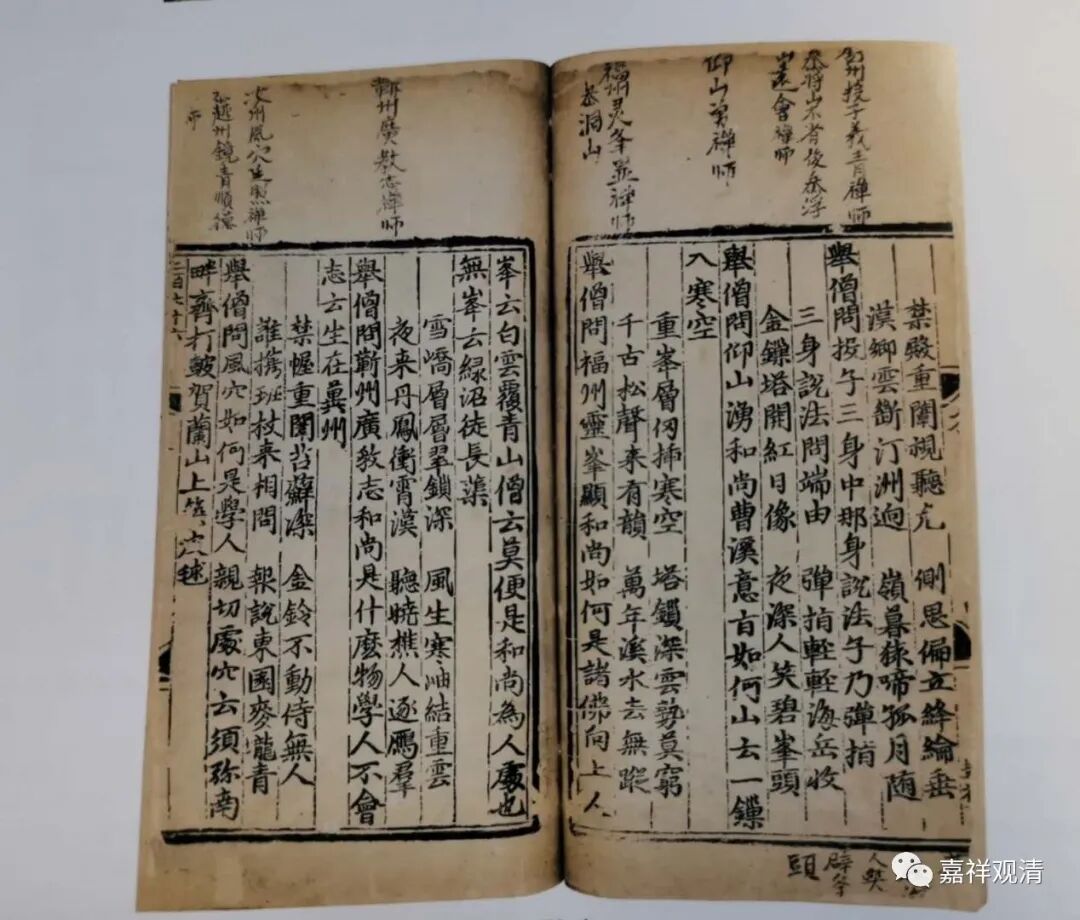 舒州投子義青禪師
叅將山不肯後叅浮
山遠會禪師
仰山勇禪師
福州灵峯顯禪師
叅洞山
禁殿重闈視聽尤　側思偏立絳綸垂
漢卿雲斷汀洲逈　嶺暮猿啼孤月随
舉僧問投子三身中那身說法子乃彈指
三身說法問端由　彈指輕輕海岳收
金鏁塔開紅日像　夜深人笑碧峯頭
舉僧問仰山湧和尚曹溪意旨如何山云一鏁
入寒空
重峯層仞揷寒空　塔鎖深雲勢莫窮
千古松聲来有韻　萬年溪水去無蹤
舉僧問福州靈峯顯和尚如何是諸佛向上人
人笑
碧峯
頭
蘄州廣教志禪師
汝州風穴延照禪師
越州鏡青順德
師
峯云白雲覆青山僧云莫便是和尚為人處也
無峯云緑沼徒長蕖
雪嶠層層翠鎖深　風生寒岫結重雲
夜来丹鳳衝霄漢　聽曉樵人逐鴈羣
舉僧問蘄州廣教志和尚是什麽物學人不會
志云生在冀州
禁幄重闈苔蘚深　金鈴不動侍無人
誰携班杖来相問　報說東園麥壠青
舉僧問風穴如何是學人親切處穴云須弥南
畔齊打皷賀蘭山上　六毬
嘉祥观清